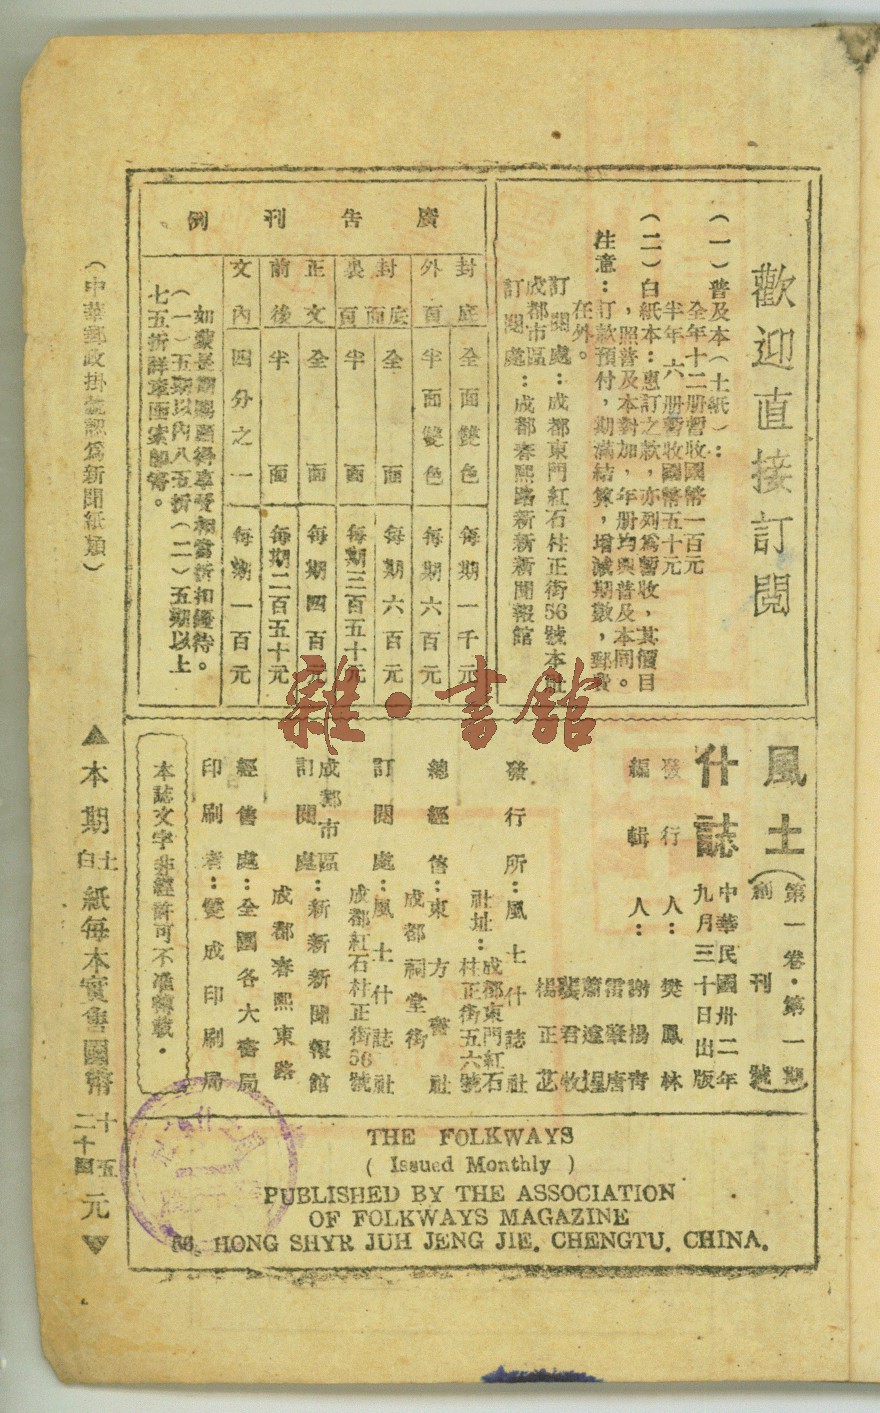 歡迎直接訂閱
（一）普及本（土紙）：
全年十二册暫收國幣一百元
半年六册暫收國幣五十元
（二）白紙本：惠訂之款，亦列爲暫收，其價目
，照普及本對加，年册均與普及本同。
注意：訂款預付，期滿結算，增減期數，郵費
在外。
訂閱處：成都東門紅石柱正街56號本社
成都市區
訂閱處：成都春熙路新新新聞報館
廣告刊例
封底外面 全面雙色 每期一千元
半面雙色 每期六百元
封面底裏頁 全面 每期六百元
半面 每期三百五十元
正文前後 全面 每期四百元
半面 每期二百五十元
文內 四分之一 每期一百元
如蒙長期惠顧得享受相當折扣優待。
（一）五期以內八五折（二）五期以上
七五折詳章函索即寄。
風土什誌
（第一卷·第一期
創刊號）
中華民國卅二年
九月三十日出版
發行人：樊鳳林
編輯人：謝揚青
雷肇唐
蕭遠煜
裴君牧
楊正苾
發行所：風土什誌社
社址：成都東門紅石
柱正街五六號
總經售：東方書社
成都祠堂街
訂閱處：風土什誌社
成都紅石柱正街56號
成都市區
訂閱處：新新新聞報館
成都春熙東路
經售處：全國各大書局
印刷者：雙成印刷局
本誌文字非經許可不准轉載·
THE FOLKWAYS
( Issued Monthly )
PUBLISHED BY THE ASSOCIATION
OF FOLKWAYS MAGAZINE
56, HONG SHYR JUH JENG JIE. CHENGTU. CHINA.
（中華郵政掛號認爲新聞紙類）
▲本期土白紙每本實售國幣十五二十四元▼
雜·書館